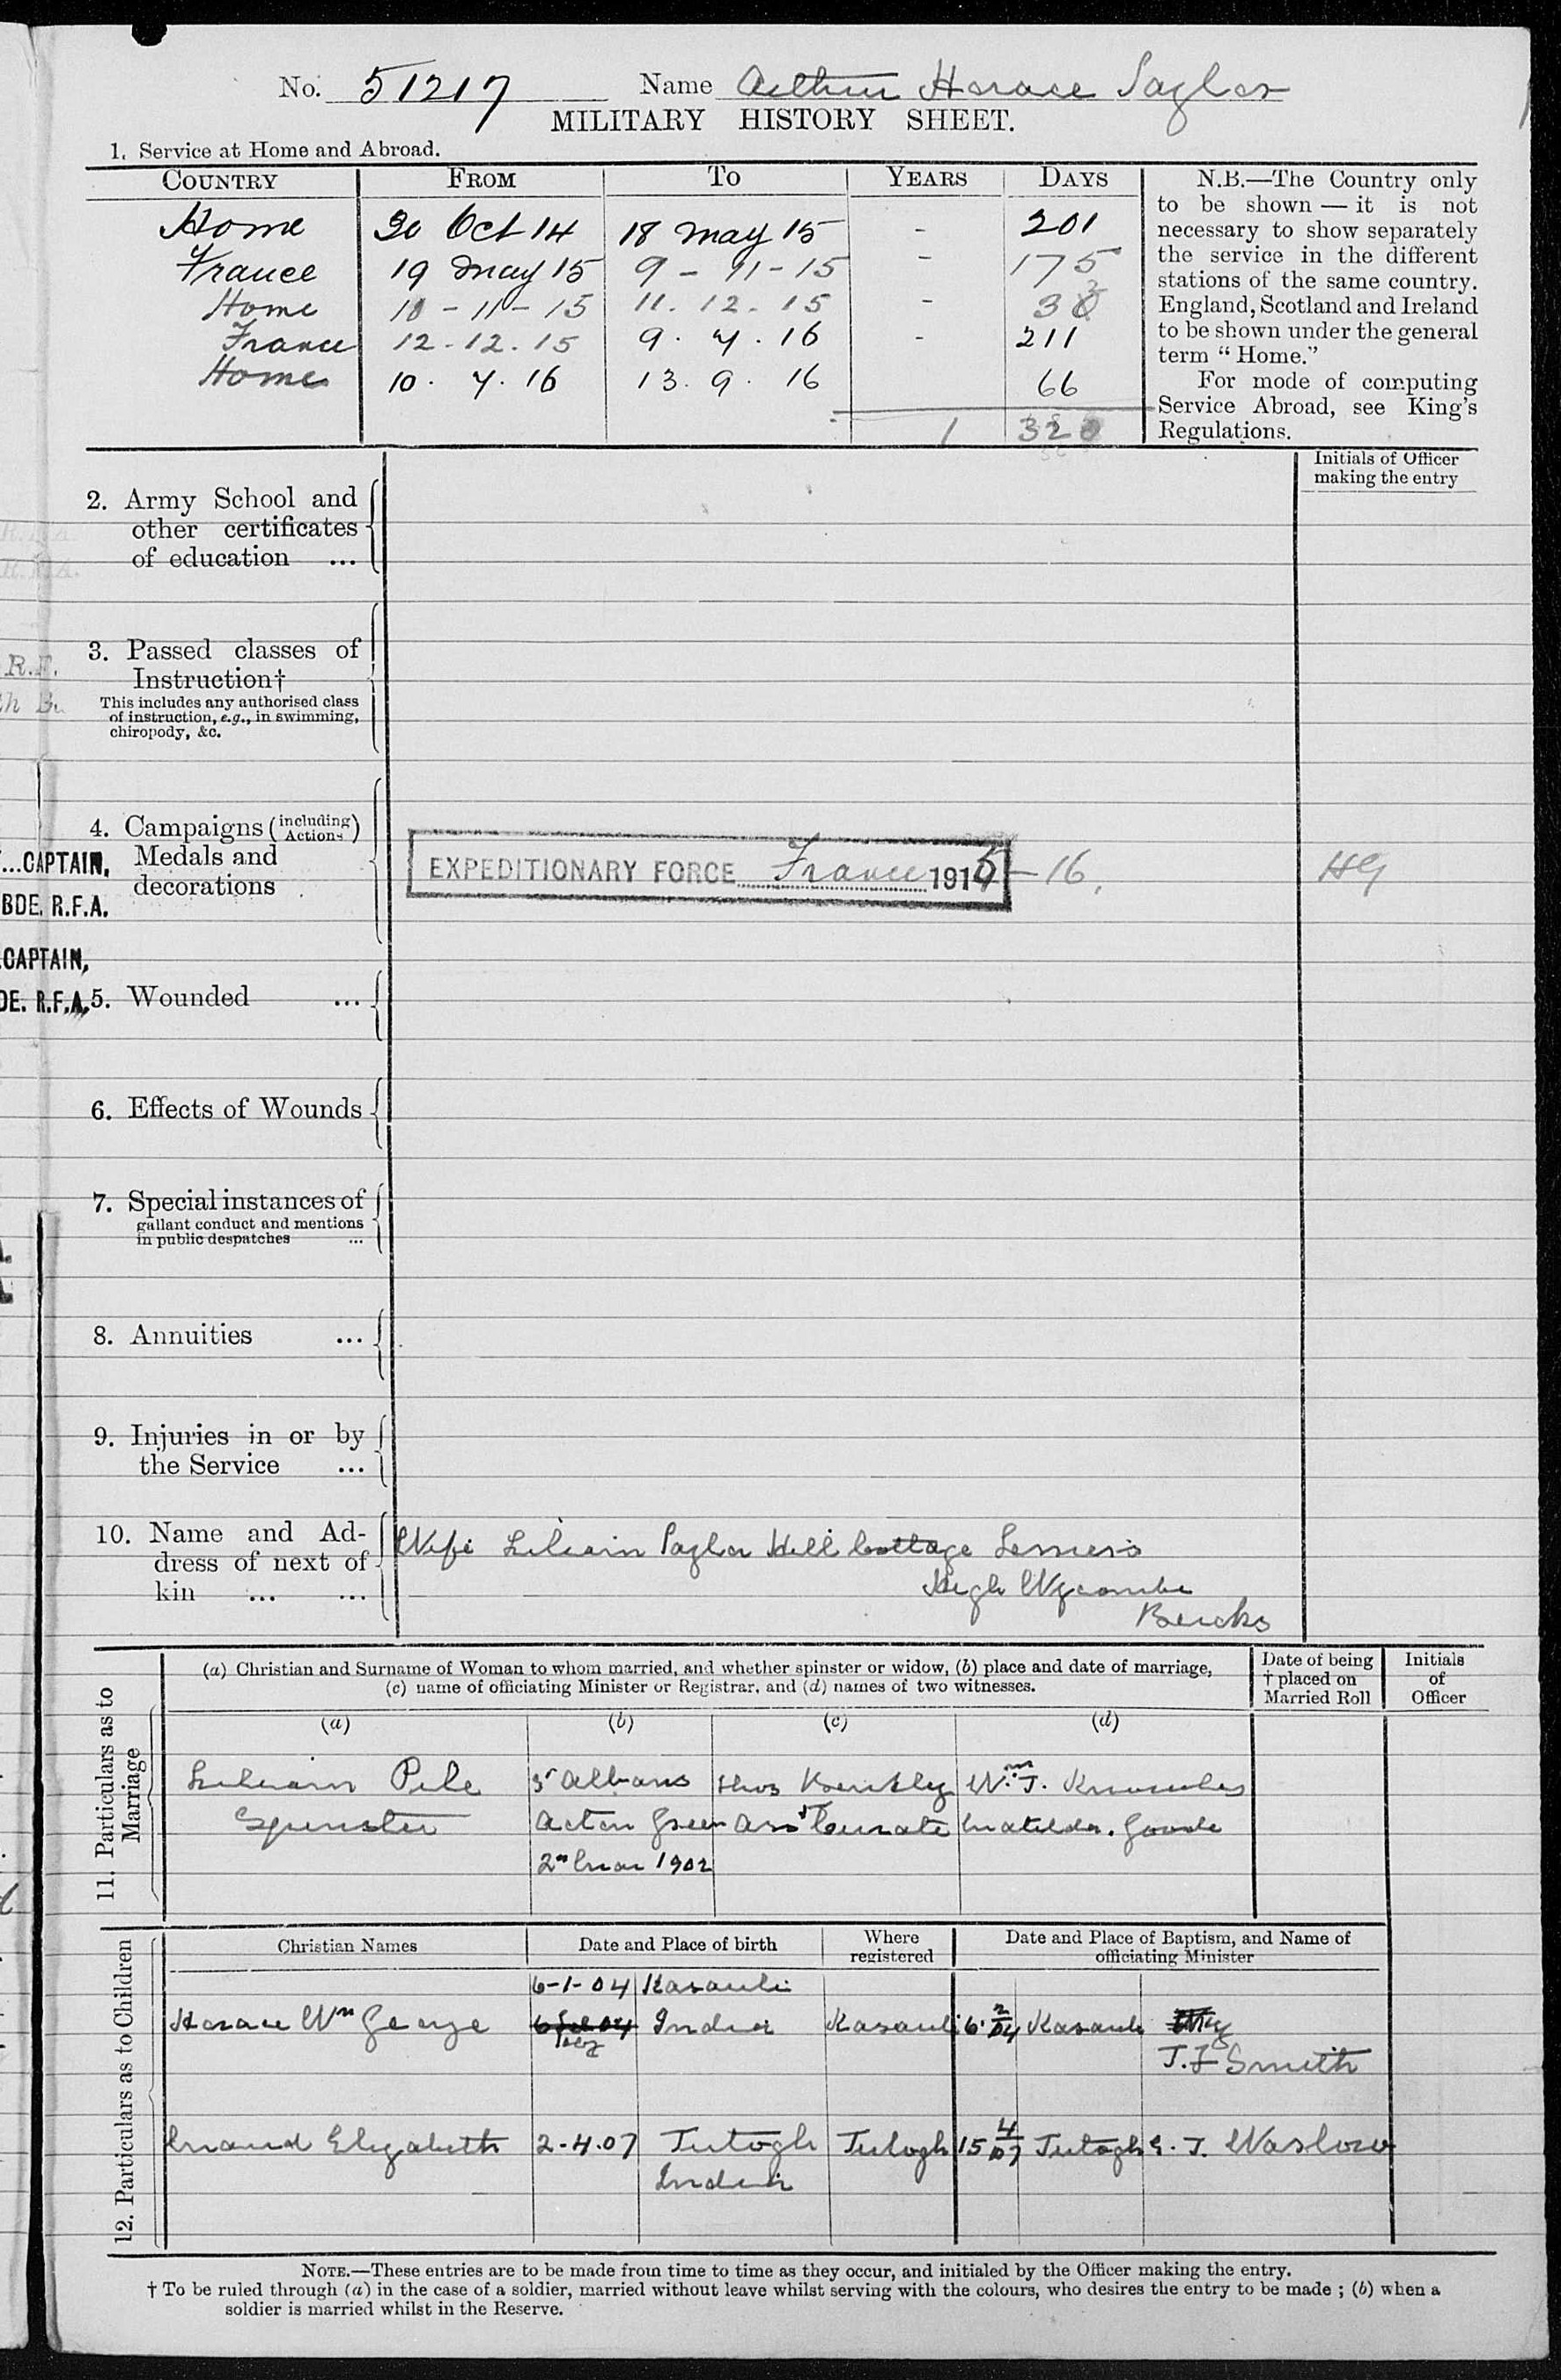 No. 51217 Name Arthur Horace Saylor
MILITARY HISTORY SHEET.
1. Service at Home and Abroad.
COUNTRY FROM TO YEARS DAYS
Home 30 Oct 14 18 May 15 - 201
France 19 May 15 9 - 11 - 15 - 175
Home 10 - 11 - 15 11. 12. 15 - 32
France 12. 12. 15 9. 7. 16 - 211
Home 10. 7. 16 13. 9. 16 66
1 320
N.B.—The Country only
to be shown — it is not
necessary to show separately
the service in the different
stations of the same country.
England, Scotland and Ireland
to be shown under the general
term “Home.”
For mode of computing
Service Abroad, see King's
Regulations.
Initials of Officer
making the entry
2. Army School and
other certificates
of education ...
3. Passed classes of
Instruction†
This includes any authorised class
of instruction, e.g., in swimming,
chiropody, &c.
4. Campaigns (including Actions)
Medals and
decorations
EXPEDITIONARY FORCE France 1915 - 16. HG
...CAPTAIN,
BDE. R.F.A.
CAPTAIN,
DE. R.F.A.
5. Wounded ...
6. Effects of Wounds
7. Special instances of
gallant conduct and mentions
in public despatches ...
8. Annuities ...
9. Injuries in or by
the Service ...
10. Name and Ad-
dress of next of
kin ... ...
Wife Lilian Saylor Hill Cottage
High Wycombe
Bucks
11. Particulars as to
Marriage
(a) Christian and Surname of Woman to whom married, and whether spinster or widow, (b) place and date of marriage,
(c) name of officiating Minister or Registrar, and (d) names of two witnesses.
Date of being
† placed on
Married Roll
Initials
of
Officer
(a) (b) (c) (d)
Lilian Pile St Albans Thos Wm. J. Knowles
Spinster Acton Green Asst Curate Matilda. Goode
2nd Mar 1902
12. Particulars as to Children
Christian Names Date and Place of birth Where
registered Date and Place of Baptism, and Name of
officiating Minister
6-1-04 Kasauli
Horace Wm George India Kasauli 6 2/04 Kasauli
J. F Smith
Maud Elizabeth 2-4.07 Jutogh Jutogh 15 4/07 Jutogh E. J. Warlow
India
NOTE.—These entries are to be made from time to time as they occur, and initialed by the Officer making the entry.
† To be ruled through (a) in the case of a soldier, married without leave whilst serving with the colours, who desires the entry to be made ; (b) when a
soldier is married whilst in the Reserve.